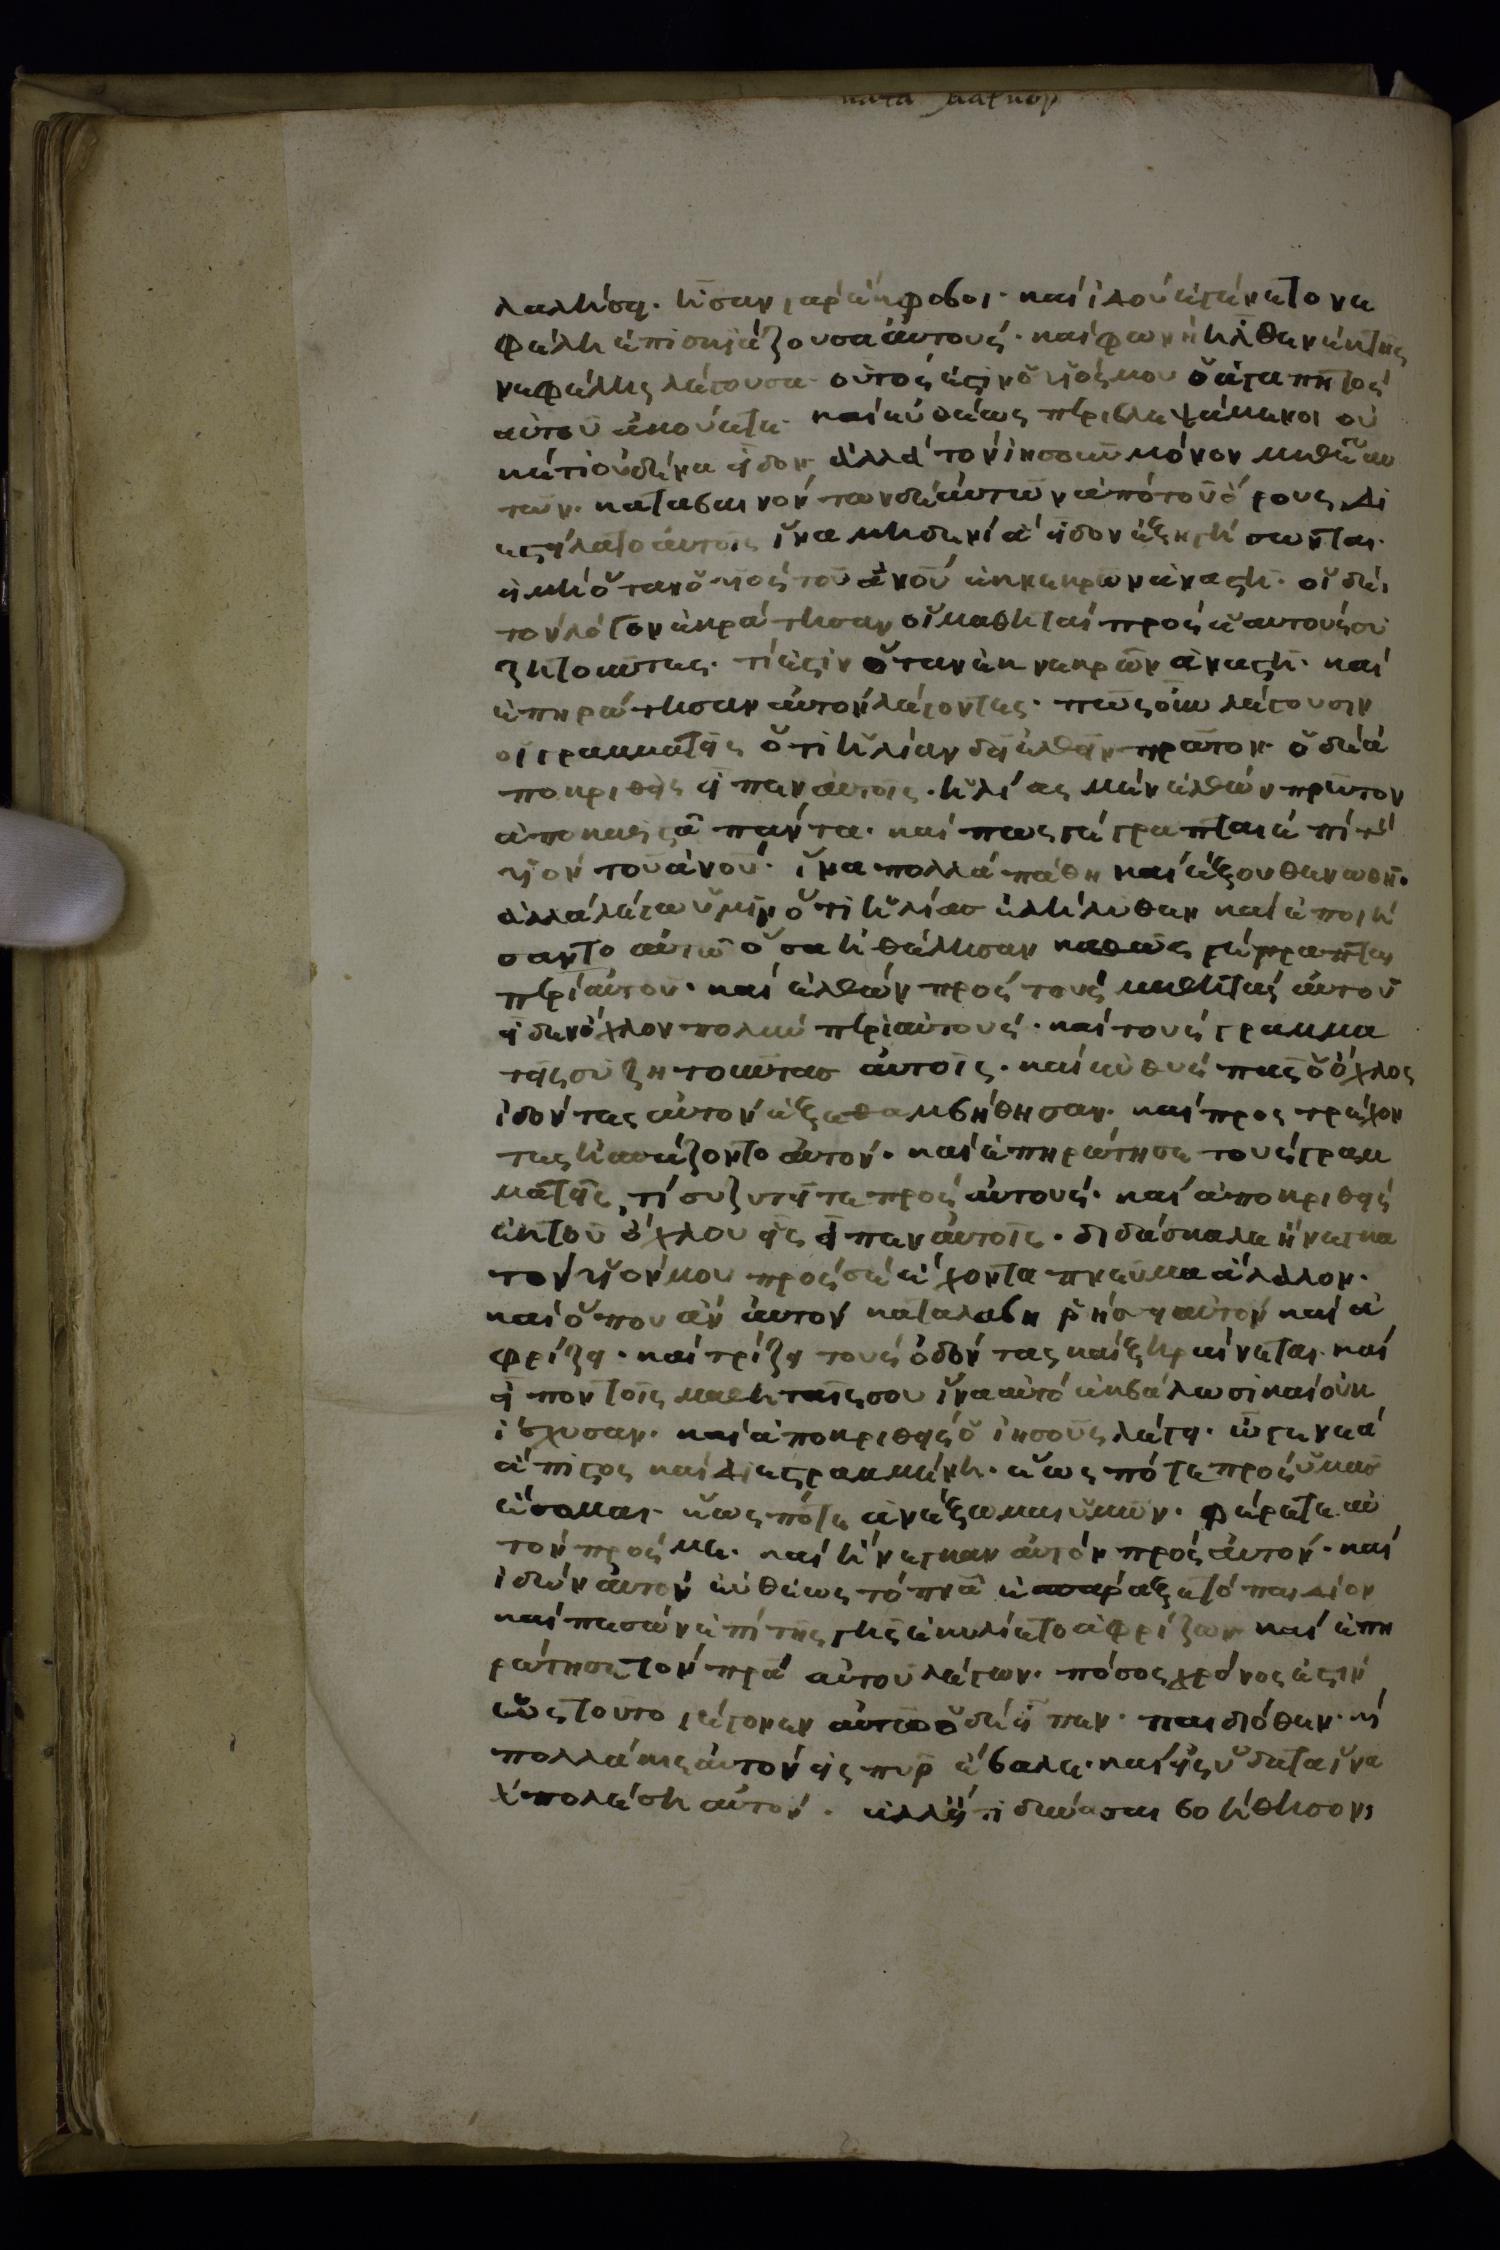 λαλήσει· ἦσαν γὰρ ἔκφοβοι· καὶ ἰδοὺ ἐγένετο νε
φέλη ἐπισκιάζουσα αὐτούς· καὶ φωνὴ ἦλθεν ἐκ τῆς
νεφέλης λέγουσα· οὗτός ἐστιν ὁ υἱός μου ὁ ἀγαπητός
αὐτοῦ ἀκούετε· καὶ εὐθέως περιβλεψάμενοι οὐ
κέτι οὐδένα εἶδον ἀλλὰ τὸν ἰησοῦν μόνον μεθ' ἑαυ
τῶν· καταβαινόντων δὲ αὐτῶν ἀπὸ τοῦ ὄρους δι
εστείλατο αὐτοῖς ἵνα μηδενὶ ἃ εἶδον ἐξηγήσωνται·
εἰ μὴ ὅταν ὁ υἱὸς τοῦ ἀνοῦ ἐκ νεκρῶν ἀναστῆ· οἱ δὲ
τὸν λόγον ἐκράτησαν οἱ μαθηταὶ πρὸς ἑαυτοὺς συ
ζητοῦντες· τί ἐστιν ὅταν ἐκ νεκρῶν ἀναστῆ· καὶ
ἐπηρώτησαν αὐτὸν λέγοντες· πῶς οὖν λέγουσιν
οἱ γραμματεῖς ὅτι ἠλίαν δεῖ ἐλθεῖν πρῶτον· ὁ δὲ ἀ
ποκριθεὶς εἶπεν αὐτοῖς· ἠλίας μὲν ἐλθὼν πρῶτον
ἀποκαθιστᾶ πάντα· καὶ πως γέγραπται ἐπὶ τὸ
υἱὸν τοῦ ἀνοῦ· ἵνα πολλὰ πάθη καὶ ἐξουθενωθῆ·
ἀλλὰ λέγω ὑμῖν ὅτι ἠλίας ἐλήλυθεν καὶ ἐποιή
σαντο αὐτῶ ὅσα ἠθέλησαν καθὼς γέγραπται
περὶ αὐτοῦ· καὶ ἐλθὼν πρὸς τοὺς μαθητὰς αὐτοῦ
εἶδεν ὄχλον πολὺν περὶ αὐτούς· καὶ τοὺς γραμμα
τεῖς συζητοῦντας αὐτοῖς· καὶ εὐθὺς πᾶς ὁ ὄχλος
ἰδόντες αὐτὸν ἐξεθαμβήθησαν· καὶ προς τρέχον
τες ἠσπάζοντο αὐτόν· καὶ ἐπηρώτησε τοὺς γραμ
ματεῖς, τί συζυτεῖτε πρὸς αὐτούς· καὶ ἀποκριθεὶς
ἐκ τοῦ ὄχλου εἷς εἶπεν αὐτοῖς· διδάσκαλε ἤνεγκα
τὸν υἱόν μου πρός σὲ ἔχοντα πνεῦμα ἄλαλον·
καὶ ὅπου ἂν αὐτὸν καταλάβη ῥήσει αὐτὸν καὶ ἀ
φρίζει· καὶ τρίζει τοὺς ὀδόντας καὶ ξηραίνεται· καὶ
εἶπον τοῖς μαθηταῖς σου ἵνα αὐτὸ ἐκβάλωσι καὶ οὐκ
ἴσχυσαν· καὶ ἀποκριθεὶς ὁ ἰησοῦς λέγει· ὦ γενεὰ
ἄπιστος καὶ διεστραμμένη· ἕως πότε πρὸς ὑμᾶς
ἔσομαι· ἕως πότε ἀνέξωμαι ὑμῶν· φέρετε αὐ
τὸν πρός με· καὶ ἤνεγκαν αὐτὸν πρὸς αὐτόν· καὶ
ἰδὼν αὐτὸν εὐθέως τὸ πνᾶ ἐσπάραξε τὸ παιδίον
καὶ πεσὼν ἐπὶ τῆς γῆς ἐκυλίετο ἀφρίζων καὶ ἐπη
ρώτησε τὸν πρα αὐτοῦ λέγων· πόσος χρόνος ἐστὶν
ὡς τοῦτο γέγονεν αὐτῶ ὁ δὲ εἶπεν· παιδιόθεν· κ
πολλάκις αὐτὸν εἰς πῦρ ἔβαλε· καὶ εἰς ὕδατα ἵνα
ἀπολέση αὐτόν· ἀλλ' εἴ τι δύνασαι βοήθησον